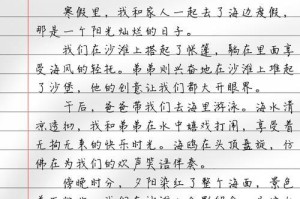 寒假里，我和家人一起去了海边度假，
那是一个阳光灿烂的日子。
我们在沙滩上搭起了帐篷，躺在里面享
受海风的轻抚。弟弟则兴奋地在沙滩上堆起
了沙堡，他的创意让我们都大开眼界。
午后，爸爸带我们去海里游泳。海水清
凉透彻，我和弟弟在水中嬉戏打闹，享受着
无拘无束的快乐时光。海鸥在头顶盘旋，仿
佛在为我们的欢声笑语伴奏。
傍晚时分，夕阳染红了整个海面，景色